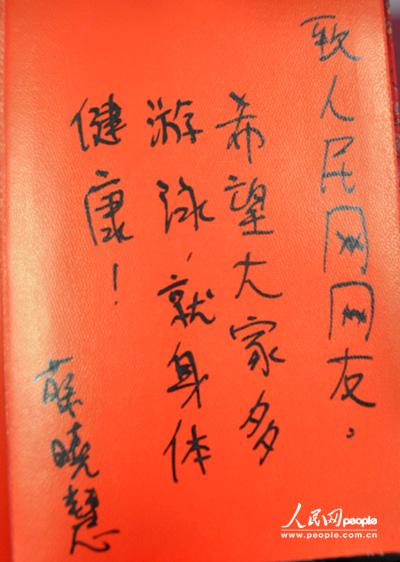 致人民网网友。
希望大家多
游泳，就身体
健康！
蔡晓慧
人民网 people
www.people.com.cn